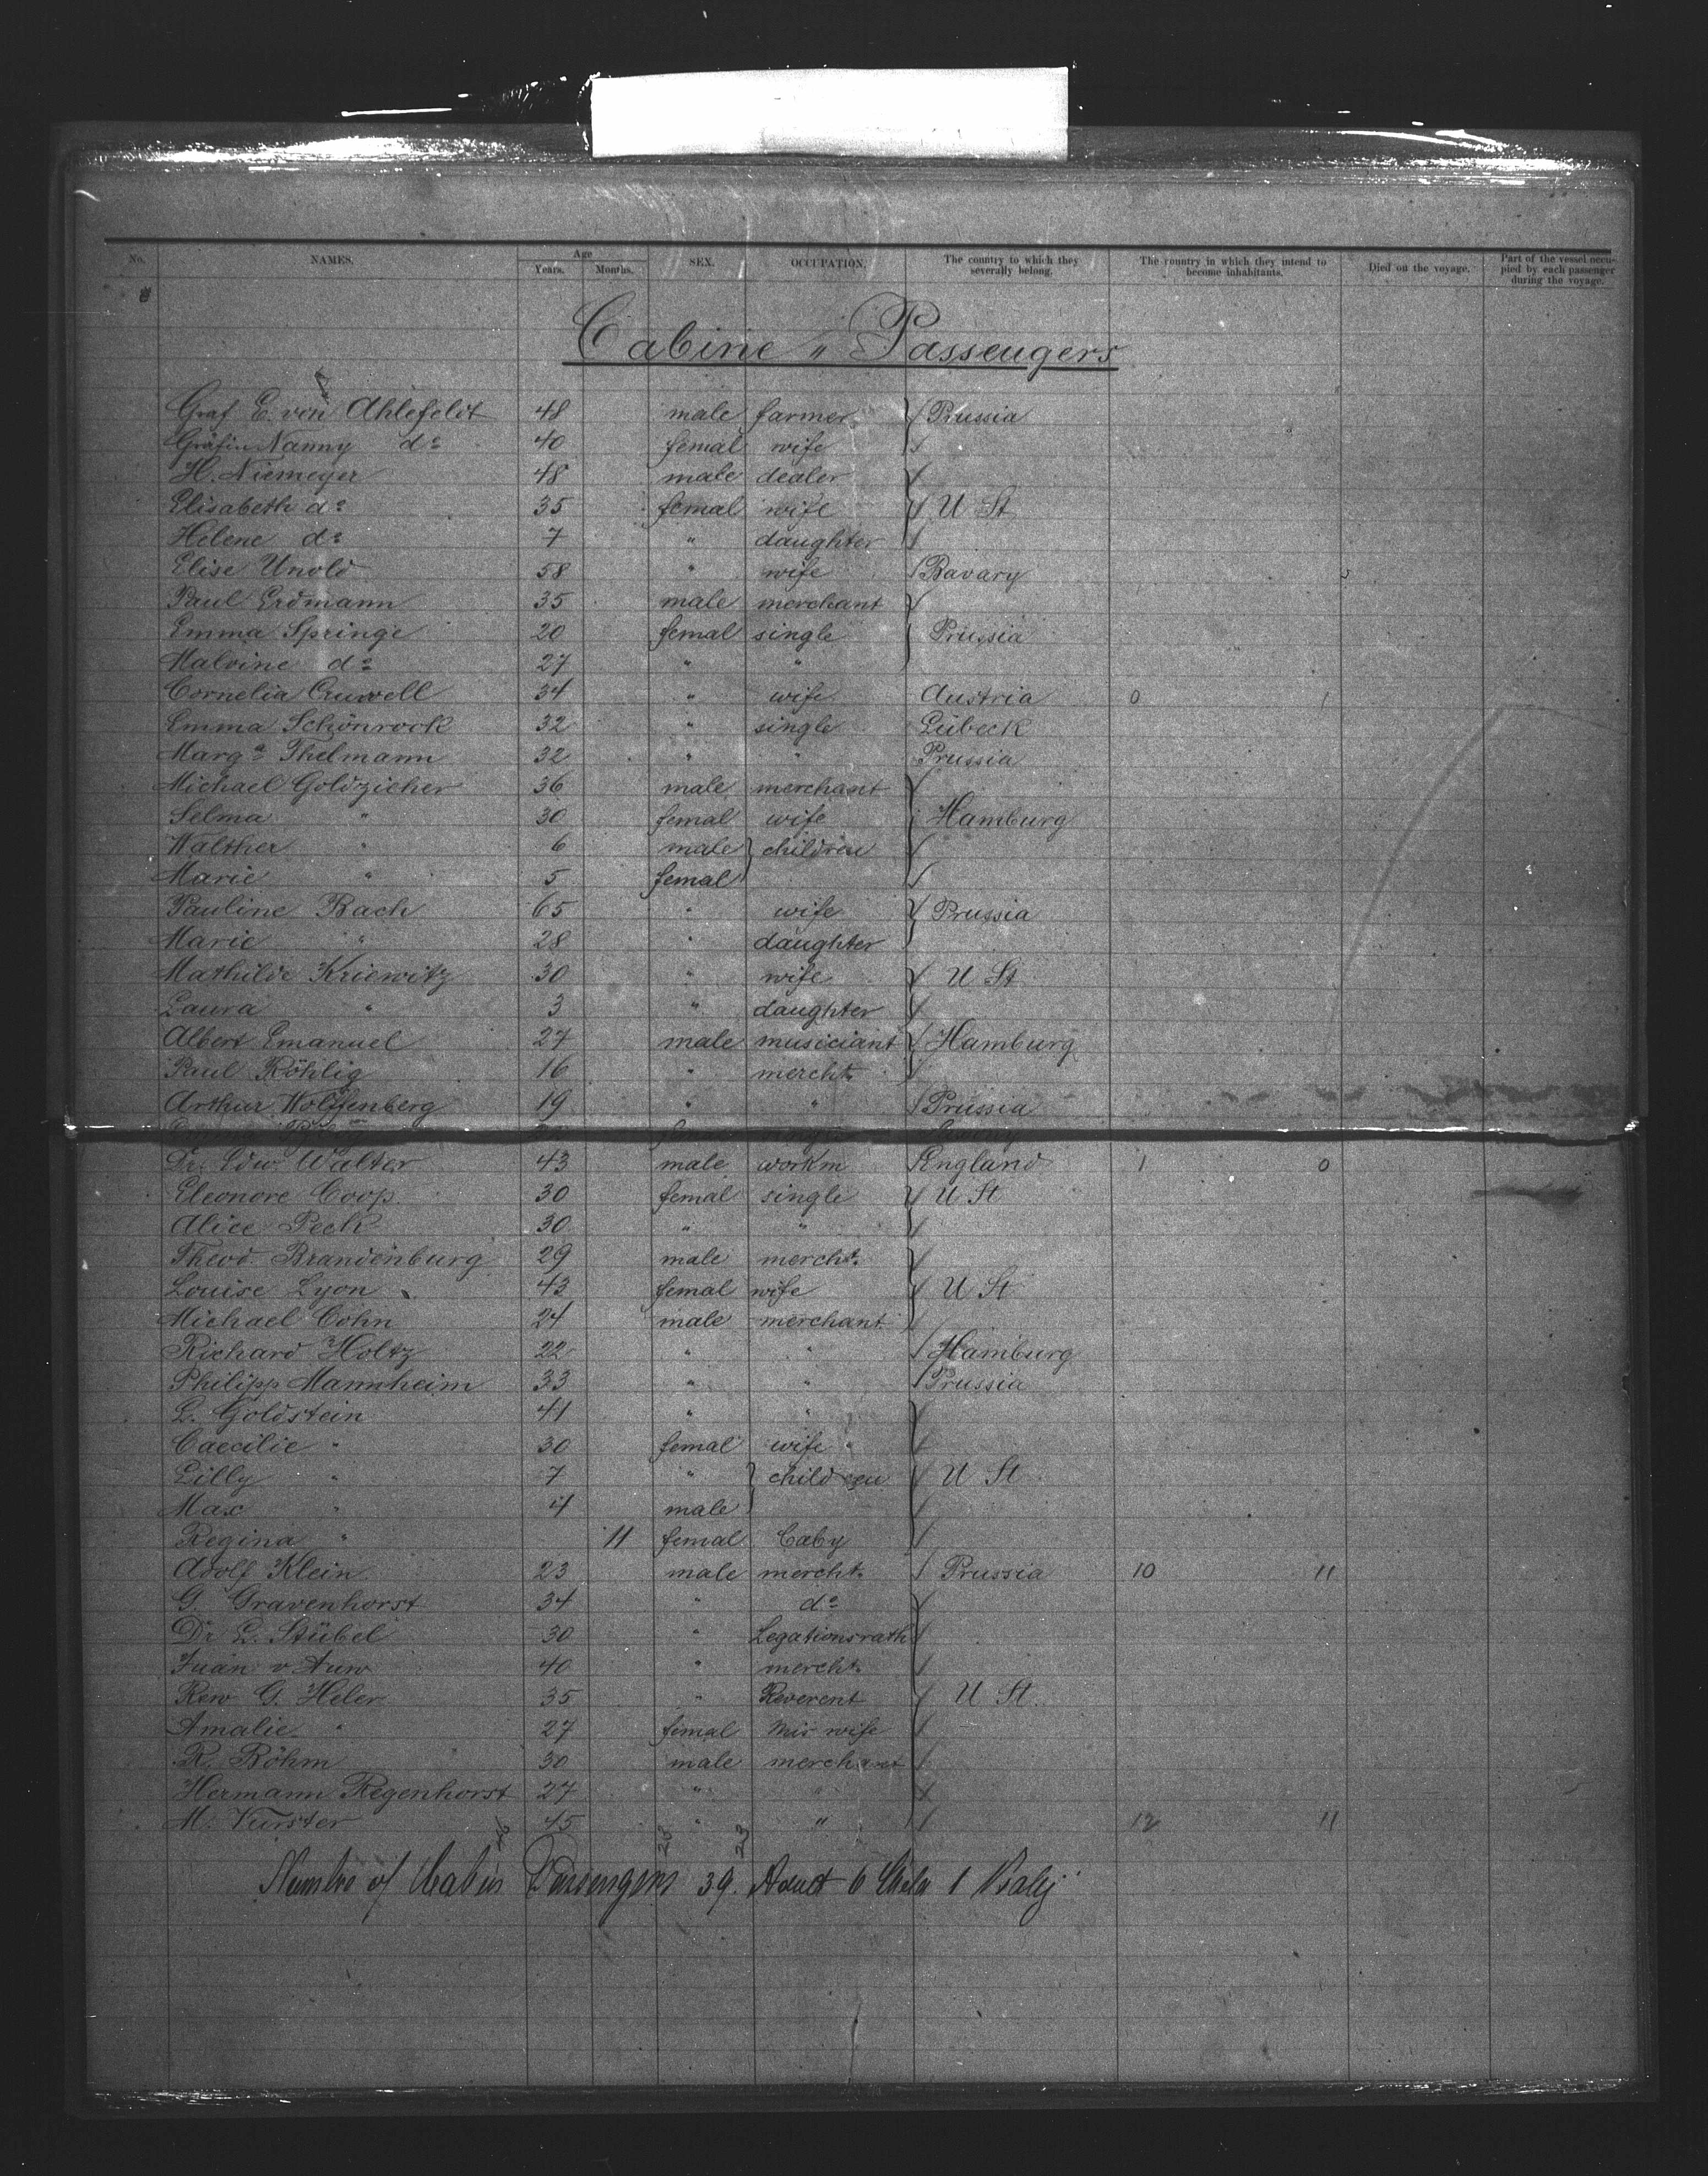 No. NAMES. Age Years. Months. SEX. OCCUPATION. The country to which they severally belong. The country in which they intend to become inhabitants. Died on the voyage. Part of the vessel occupied by each passenger during the voyage.
Cabine " Passengers
Graf E. von Ahlefeldt 48 male farmer Prussia
Gräfin Nanny do 40 femal wife
H. Niemeyer 48 male dealer
Elisabeth do 35 femal wife U St
Helene do 7 " daughter
Elise Unold 58 " wife Bavary
Paul Erdmann 35 male merchant
Emma Springe 20 femal single Prussia
Malvine do 27 " "
Cornelia Cruwell 34 " wife Austria 0 1
Emma Schönrock 32 " single Lübeck
Marga Thelmann 32 " " Prussia
Michael Goldzieher 36 male merchant
Selma " 30 femal wife Hamburg
Walther " 6 male children
Marie " 5 femal
Pauline Bach 65 " wife Prussia
Marie " 28 " daughter
Mathilde Kriewitz 30 " wife U St
Laura " 3 " daughter
Albert Emanuel 27 male musiciant Hamburg
Paul Röhlig 16 " mercht.
Arthur Wolffenberg 19 " " Prussia
Dr. Edw. Walter 43 male workm England 1 0
Eleonore Coop 30 femal single U St
Alice Peck 30 " "
Theod. Brandenburg 29 male mercht.
Louise Lyon 43 femal wife U St
Michael Cohn 24 male merchant
Richard Holtz 22 " " Hamburg
Philipp Mannheim 33 " " Prussia
L. Goldstein 41 " "
Caecilie " 30 femal wife
Lilly " 7 " children U St
Max " 4 male
Regina " 11 femal Baby
Adolf Klein 23 male mercht. Prussia 10 11
G. Gravenhorst 34 " do
Dr. L. Stübel 30 " Legationsrath
Juan v Auw 40 " mercht.
Rew G. Heler 35 " Reverent U St.
Amalie " 27 femal wife
R. Böhm 30 male merchant
Hermann Regenhorst 27 " "
M. Furster 45 " " 12 11
46 23 23
Number of Cabin Passengers 39. Adult 6 Child 1 Baby